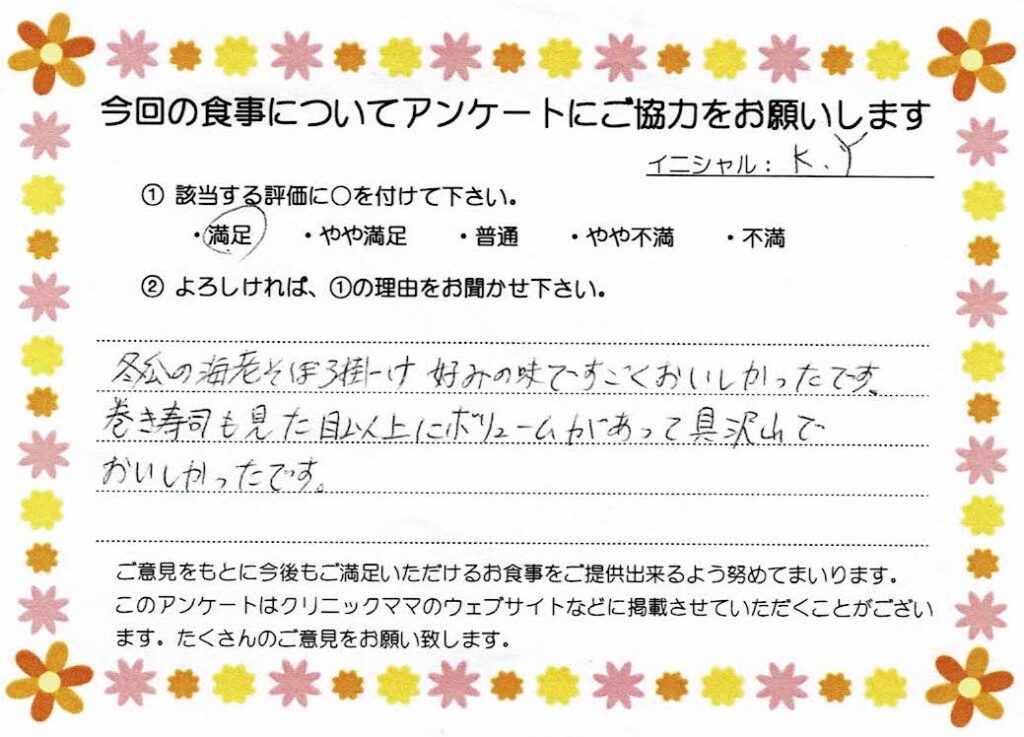 今回の食事についてアンケートにご協力をお願いします
イニシャル：K.Y
① 該当する評価に〇を付けて下さい。
・満足 ・やや満足 ・普通 ・やや不満 ・不満
② よろしければ、①の理由をお聞かせ下さい。
冬瓜の海老そぼろ掛け 好みの味ですごくおいしかったです。
巻き寿司も見た目以上にボリュームがあって具沢山で
おいしかったです。
ご意見をもとに今後もご満足いただけるお食事をご提供出来るよう努めてまいります。
このアンケートはクリニックママのウェブサイトなどに掲載させていただくことがござい
ます。たくさんのご意見をお願い致します。